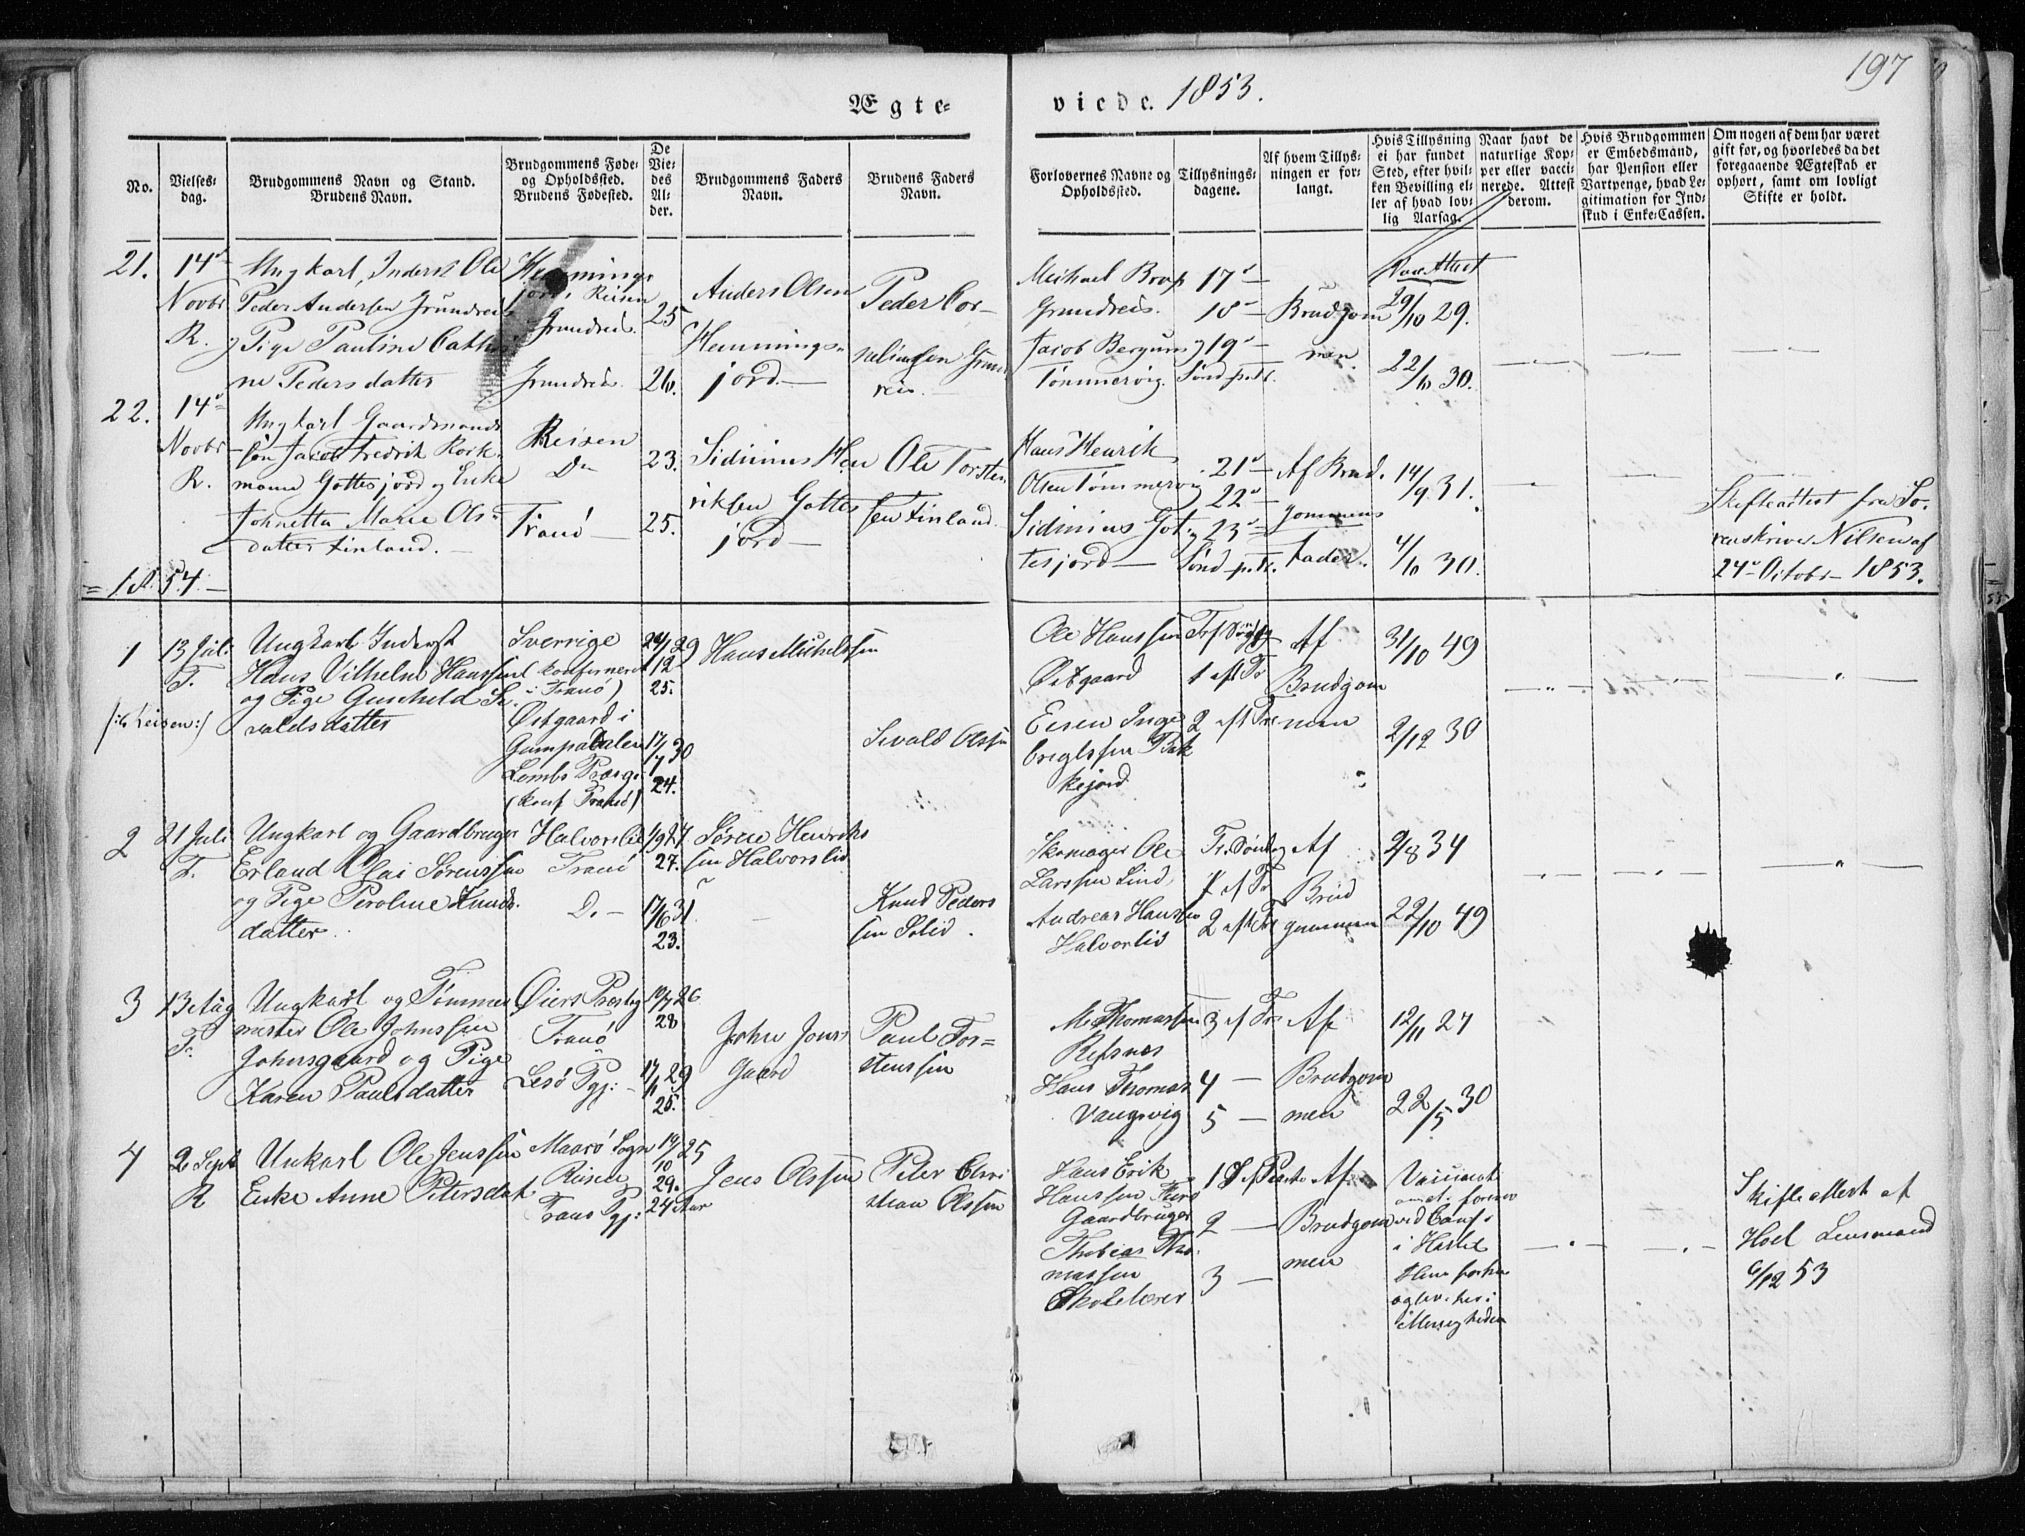 197
Ægte-
viede. 1853.
No.
Vielses-
dag.
Brudgommens Navn og Stand.
Brudens Navn.
Brudgommens Føde-
og Opholdssted.
Brudens Fødested.
De
Vie-
des
Al-
der.
Brudgommens Faders
Navn.
Brudens Faders
Navn.
Forlovernes Navne og
Opholdssted.
Tillysnings-
dagene.
Af hvem Tillys-
ningen er for-
langt.
Hvis Tillysning
ei har fundet
Sted, efter hvil-
ken Bevilling el-
ler af hvad lov-
lig Aarsag.
Naar havt de
naturlige Kop-
per eller vacci-
nerede. Attest
derom.
Hvis Brudgommen
er Embedsmand,
har Pension eller
Vartpenge, hvad Le-
gitimation for Ind-
skud i Enke-Cassen.
Om nogen af dem har været
gift for, og hvorledes da det
foregaaende Ægteskab er
ophørt, samt om lovligt
Skifte er holdt.
21.
14
Novbr
R.
Ungkarl, Inderst Ole
Peder Andersen Grundreis
Pige Pauline Cathri
ne Pedersdatter
Hemmings
jord, Reisen
Grundreis.
Grundreis.
25
26.
Anders Olsen
Hemmings-
jord.
Peder Cor-
neliussen Grund
reis.
Michael Brox
Grundreis.
Jacob Bergum
Tømmervig.
17
18
19
Sønd p. Tr.
Brudgom
men.
Vax. Attest
29/10 29.
22/10 30.
22.
14
Novbr
R.
Ungkarl Gaardmands
søn Jacob Fredrik Kork-
mann Gottesjord og Enke
Johnetta Marie Ols-
datter Finland.
Reisen
Do
Tranö
23.
25.
Sidinius Hen
riksen Gottes
jord
Ole Torsten
sen Finland.
Hans Henrik
Olsen Tømmervig
Sidinius Got-
tesjord
21
22
23
Sønd p. Tr.
Af Brud-
gommens
Fader.
14/9 31.
4/10 30.
Skifteattest fra So-
renskriver Nilsen af
24 Octobr 1853.
= 1854.
1
13 Juli
T.
(: i Reisen :)
Ungkarl Inderst
Hans Vilhelm Hanssen
og Pige Gunhild Si-
valdsdatter
Sverrige
(konfirmeret
i Tranö)
Østgaard i
Gumpedalen
Lomb Præstg
(konf Tranö)
24/12 29
25.
17/7 30
24.
Hans Michelssen
Sivald Olssen
Ole Hanssen
Østgaard
Eisen Inge
brigtssen Bak
kejord
1 eft Tr
2 eft Tr
Af
Brudgom
men
31/10 49
2/12 30
2
21 Juli
T.
Ungkarl og Gaardbruger
Erland Olai Sørenssen
og Pige Peroline Knuds-
datter
Halvorslid
Tranö
D.
1/9 27
27.
17/6 31
23.
Søren Henriks
sen Halvorslid
Knud Peders
sen Solid.
Skomager Ole
Larssen Lind
Andreas Hanssen
Halvorslid
Tr. Søndag
1 ef Tr
2 eft Tr
Af
Brud
gommen
2/8 34
22/10 49
3
13 Aug
T.
Ungkarl og Tømmer
mester Ole Johnssen
Johnsgaard og Pige
Karen Paulsdatter
Øiers Præsteg
Tranö
Lesø Pgj:
10/7 26
28
17/11 29
25.
John Jons
Gaard
Paul Tor=
stenssen
M. Thomassen
Refsnes
Hans Thomas
Vangsvig
3 ef Tr
4
5
Af
Brudgom
men
12/11 27
22/5 30
4
2 Sept
R
Unkarl Ole Jenssen
Enke Anne Petersdat
Maasö Sogn
Reisen
Tranö Pgj:
19/10 25
29.
24 Aar
Jens Olssen
Peter Chri
stian Olssen
Hans Erik
Hanssen
Gaardbruger
Thobias Tho-
massen
Skolelærer
2
3
Af
Brudgom
men
Skifteattest af
Hoel Lensmand
6/12 53